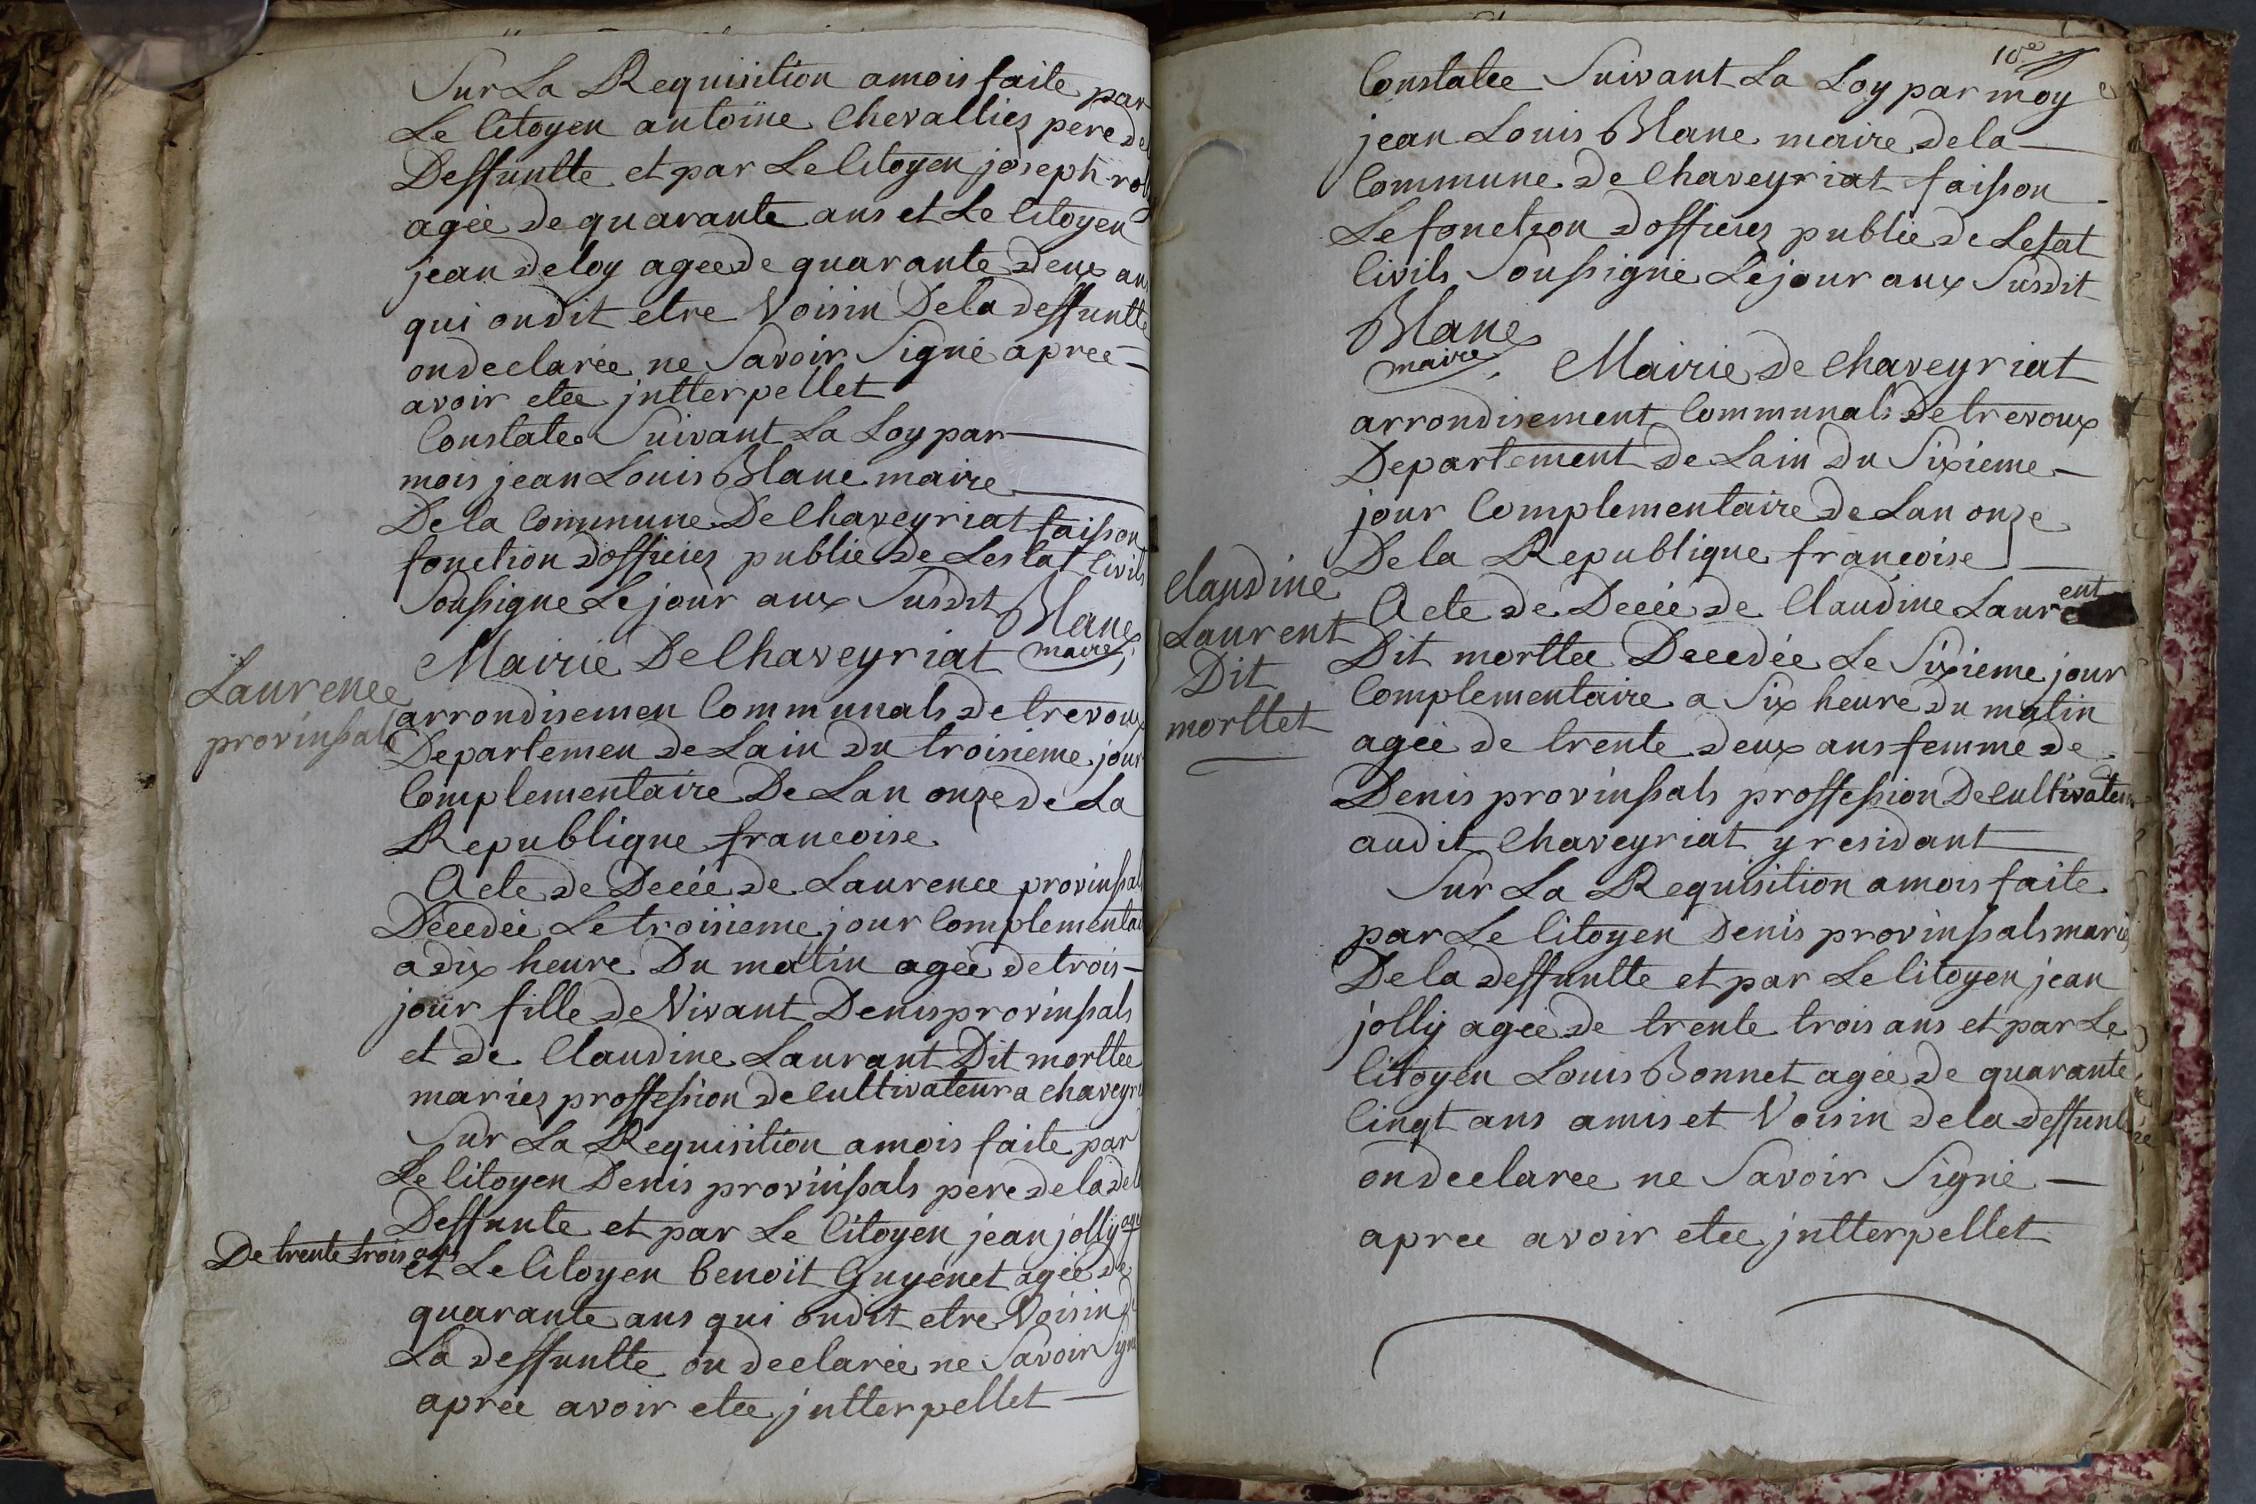 Sur La Requisition a mois faite par
Le Citoyen antoine Chevallier pere de
Deffuntte et par Le Citoyen joseph
agée de quarante ans et Le Citoyen
jean deloy agee de quarante deux ans
qui ondit etre Voisin De la deffuntte
on declarée ne Savoir Signé apree
avoir etee jntterpellet
Constatee Suivant La Loy par
mois jean Louis Blanc maire
De la Commune De Chaveyriat faisson
fonction dofficiez public de Lestat Civils
Soussigne Le jour aux Susdit Blanc
maire
Mairie De Chaveyriat
Laurence
provinssals
arrondisemen Communals de trevoux
Departemen de Lain du troisieme jour
Complementaire De Lan onze de La
Republique francoise
Acte de Decée de Laurence provinssals
Decedée Le troisieme jour Complementai
a dix heure Du matin agée de trois
jour fille de Vivant Denis provinssals
et de Claudine Laurant Dit morttee
mariez proffession de Cultivateur a Chaveyri
Sur La Requisition a mois faite par
Le Citoyen Denis provinssals pere de la de
Deffunte et par Le Citoyen jean jolly agé
De trente trois ans
et Le Citoyen benoit Guyenet agée de
quarante ans qui ondit etre Voisin de
La deffuntte on declarée ne Savoir Signe
apree avoir etee jntterpellet
10e
Constatee Suivant La Loy par moy
jean Louis Blanc maire de la
Commune de Chaveyriat faisson
Le fonction dofficiez public de Lestat
Civils Soussigné Le jour aux Susdit
Blanc
maire
Mairie de Chaveyriat
arrondisement Communals de trevoux
Departement de Lain du Sixieme
jour Complementaire de Lan onze
De la Republique francoise
Claudine
Laurent
Dit
morttet
Acte de Decée de Claudine Laurent
Dit morttee Decedée Le Sixieme jour
Complementaire a Six heure du matin
agée de trente deux ans femme de
Denis provinssals proffession De Cultivateur
audit Chaveyriat y residant
Sur La Requisition a mois faite
par Le Citoyen Denis provinssals mariez
De la deffuntte et par Le Citoyen jean
jolly agée de trente trois ans et par Le
Citoyen Louis Bonnet agée de quarante
Cinqt ans amis et Voisin de la deffuntte
on declaree ne Savoir Signé
apree avoir etee jntterpellet